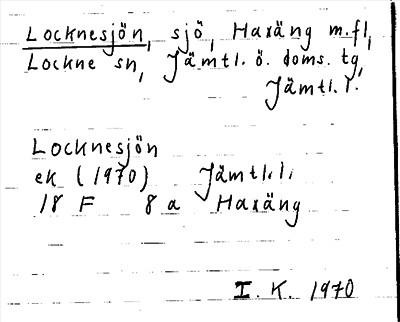 Locknesjön, sjö, Haxäng m.fl,
Lockne sn, Jämtl. ö. doms. tg,
Jämtl. l.
Locknesjön
ek (1970) Jämtl. l.
18 F 8 a Haxäng
I. K. 1970